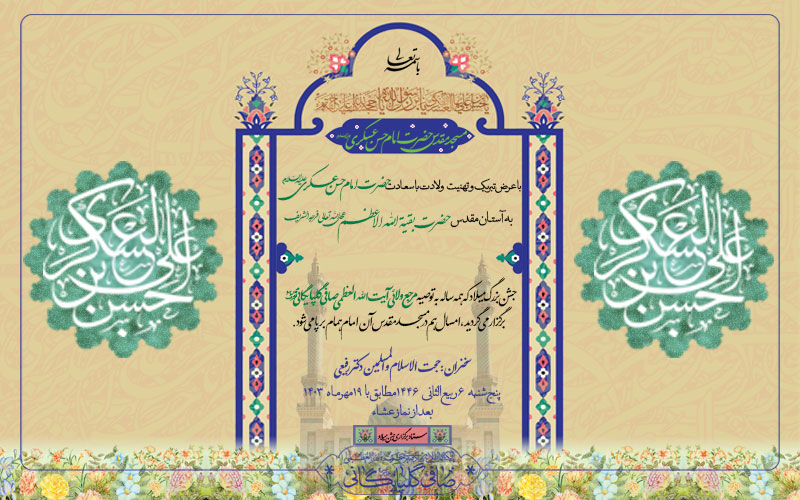 باسمه تعالی
مسجد مقدس حضرت امام حسن عسکری علیه‌السلام
با عرض تبریک و تهنیت ولادت با سعادت حضرت امام حسن عسکری علیه‌السلام
به آستان مقدس حضرت بقیة الله الاعظم عجل الله تعالی فرجه الشریف
جشن بزرگ میلاد که همه ساله به توصیه مرجع ولائی آیت الله العظمی صافی گلپایگانی
برگزار می گردید، امسال هم در مسجد مقدس آن امام همام برپا می شود.
سخنران: حجت الاسلام والمسلمین دکتر رفیعی
پنج شنبه ۶ ربیع الثانی ۱۴۴۶ مطابق با ۱۹ مهر ماه ۱۴۰۳
بعد از نماز عشاء
ستاد برگزاری جشن میلاد
صافی گلپایگانی
حسن بن علی العسکری
حسن بن علی العسکری